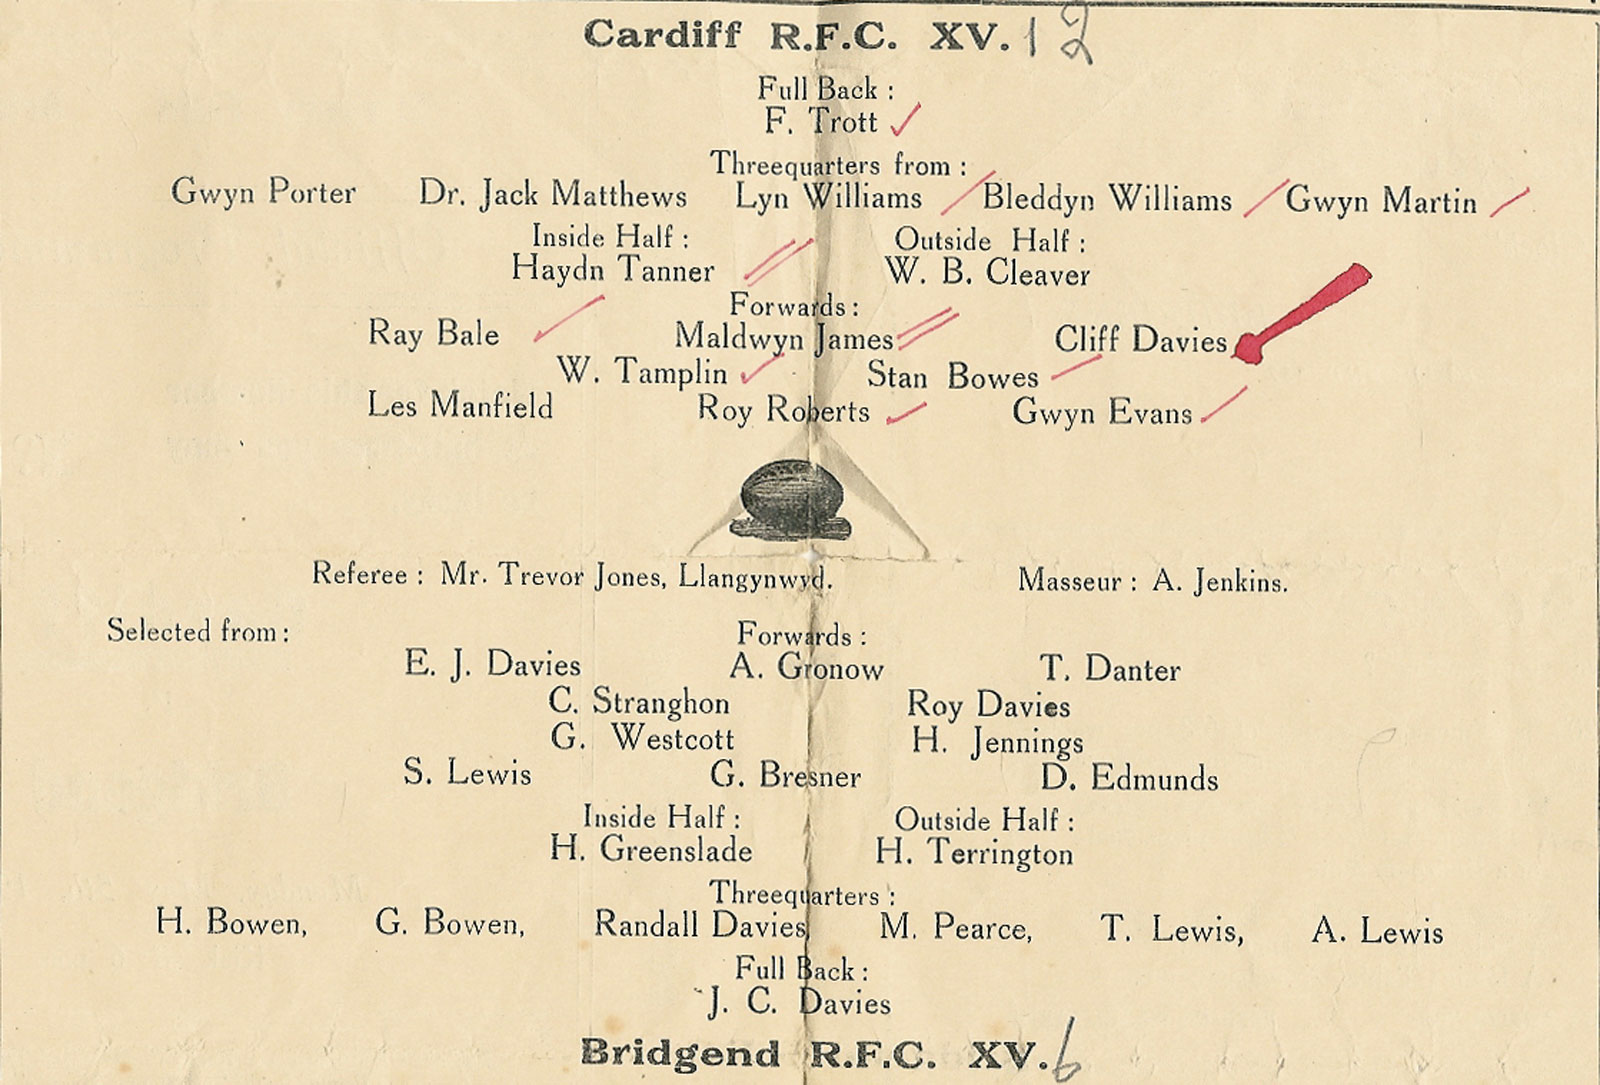 Cardiff R.F.C. XV. 12
Full Back :
F. Trott
Threequarters from :
Gwyn Porter Dr. Jack Matthews Lyn Williams Bleddyn Williams Gwyn Martin
Inside Half : Outside Half :
Haydn Tanner W. B. Cleaver
Forwards :
Ray Bale Maldwyn James Cliff Davies
W. Tamplin Stan Bowes
Les Manfield Roy Roberts Gwyn Evans
Referee : Mr. Trevor Jones, Llangynwyd. Masseur : A. Jenkins.
Selected from : Forwards :
E. J. Davies A. Gronow T. Danter
C. Stranghon Roy Davies
G. Westcott H. Jennings
S. Lewis G. Bresner D. Edmunds
Inside Half : Outside Half :
H. Greenslade H. Terrington
Threequarters :
H. Bowen, G. Bowen, Randall Davies, M. Pearce, T. Lewis, A. Lewis
Full Back :
J. C. Davies
Bridgend R.F.C. XV. 6